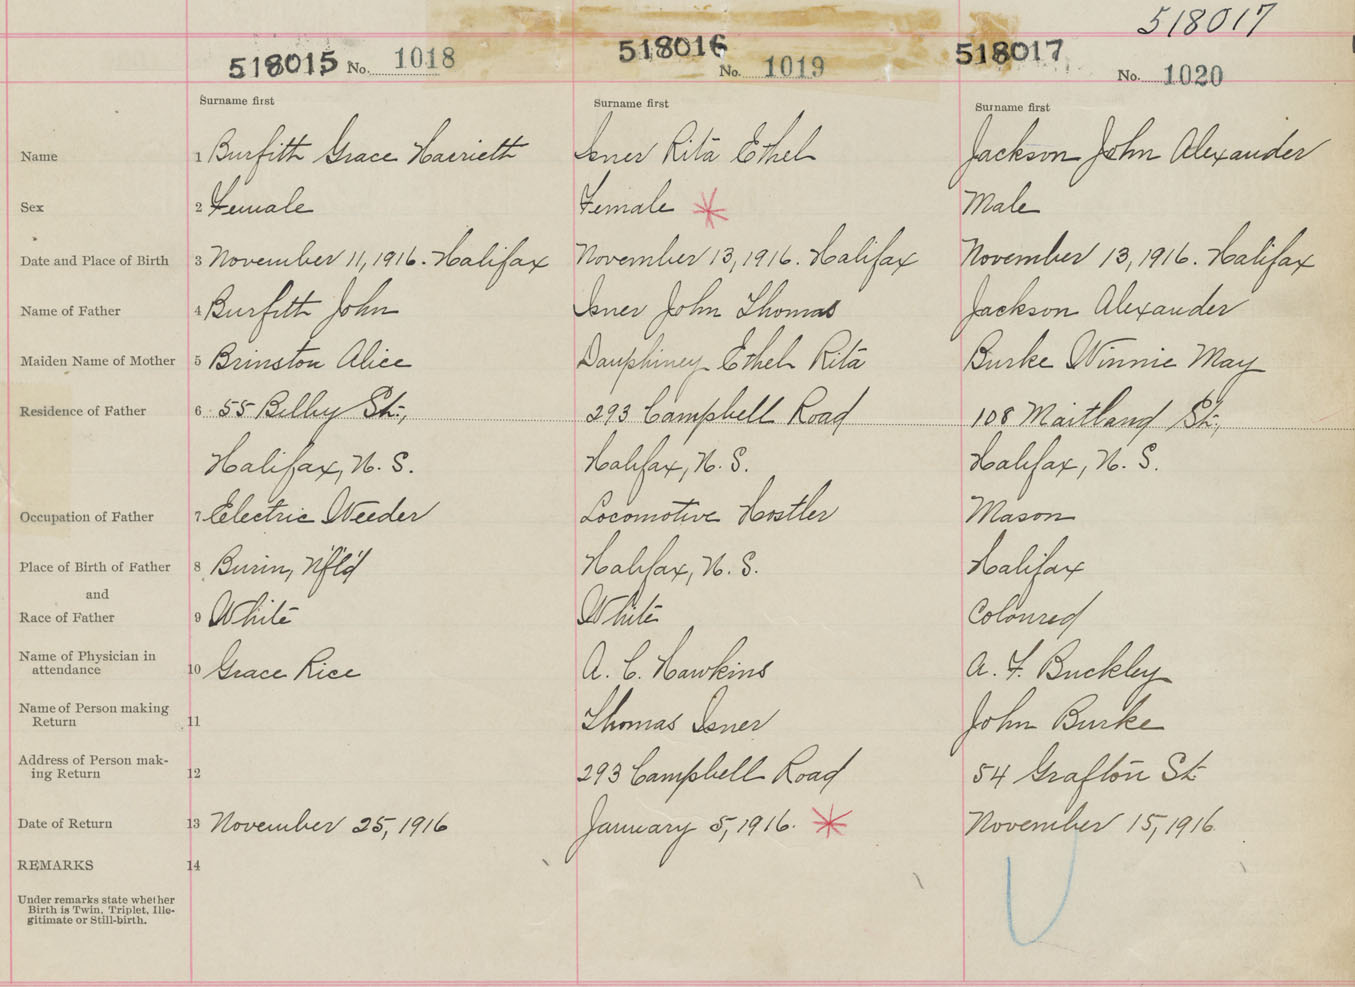 518017
518015 No. 1018 518016 No. 1019 518017 No. 1020
Surname first Surname first Surname first
Name 1 Burfitt Grace Harrieth Isner Rita Ethel Jackson John Alexander
Sex 2 Female Female Male
Date and Place of Birth 3 November 11, 1916. Halifax November 13, 1916. Halifax November 13, 1916. Halifax
Name of Father 4 Burfitt John Isner John Thomas Jackson Alexander
Maiden Name of Mother 5 Brinston Alice Dauphiney Ethel Rita Burke Winnie May
Residence of Father 6 55 Bilby St., 293 Campbell Road 108 Maitland St.,
Halifax, N. S. Halifax, N. S. Halifax, N. S.
Occupation of Father 7 Electric Weeder Locomotive Hostler Mason
Place of Birth of Father 8 Burin, N'f'l'd Halifax, N. S. Halifax
and
Race of Father 9 White White Coloured
Name of Physician in
attendance 10 Grace Rice A. C. Hawkins A. F. Buckley
Name of Person making
Return 11 Thomas Isner John Burke
Address of Person mak-
ing Return 12 293 Campbell Road 54 Grafton St.
Date of Return 13 November 25, 1916 January 5, 1916. November 15, 1916
REMARKS 14
Under remarks state whether
Birth is Twin, Triplet, Ille-
gitimate or Still-birth.